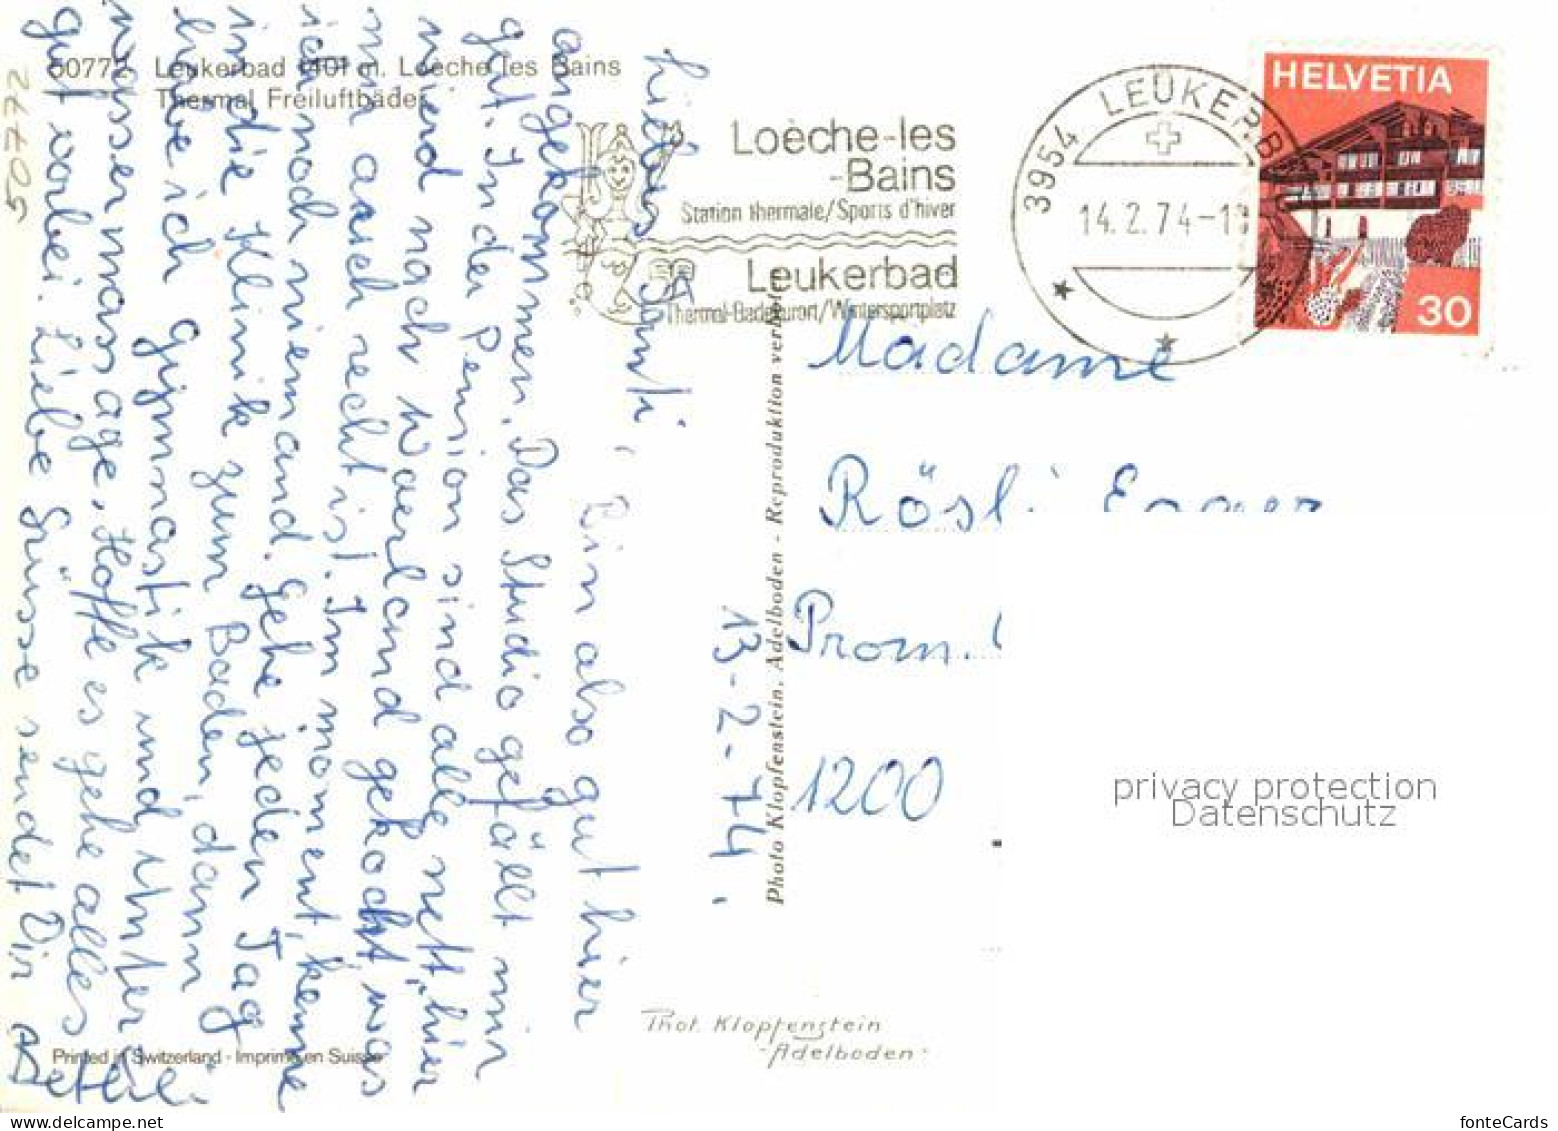 50772 Leukerbad 1401 m. Loèche les Bains
Thermal Freiluftbäder
27705
Loèche-les
-Bains
Station thermale/Sports d'hiver
Leukerbad
Thermal-Badekurort/Wintersportplatz
3954 LEUKERB
14.2.74-1
HELVETIA
30
13-2-74.
Liebes Santi,
Bin also gut hier
angekommen. Das Studio gefällt mir
gut. In der Pension sind alle nett, hier
wierd nach Waerland gekocht was
mir auch recht ist. Im moment, kenne
ich noch niemand. Gehe jeden Tag
in die Klinik zum Baden, dann
habe ich Gymnastik und Unter
wassermassage. Hoffe es gehe alles
gut vorbei. Liebe Grüsse sendet Dir
Madame
Rösli Egger
Prom.
1200
Photo Klopfenstein, Adelboden - Reproduktion verboten
Phot. Klopfenstein
-Adelboden-
Printed in Switzerland - Imprimé en Suisse
privacy protection
Datenschutz
fonteCards